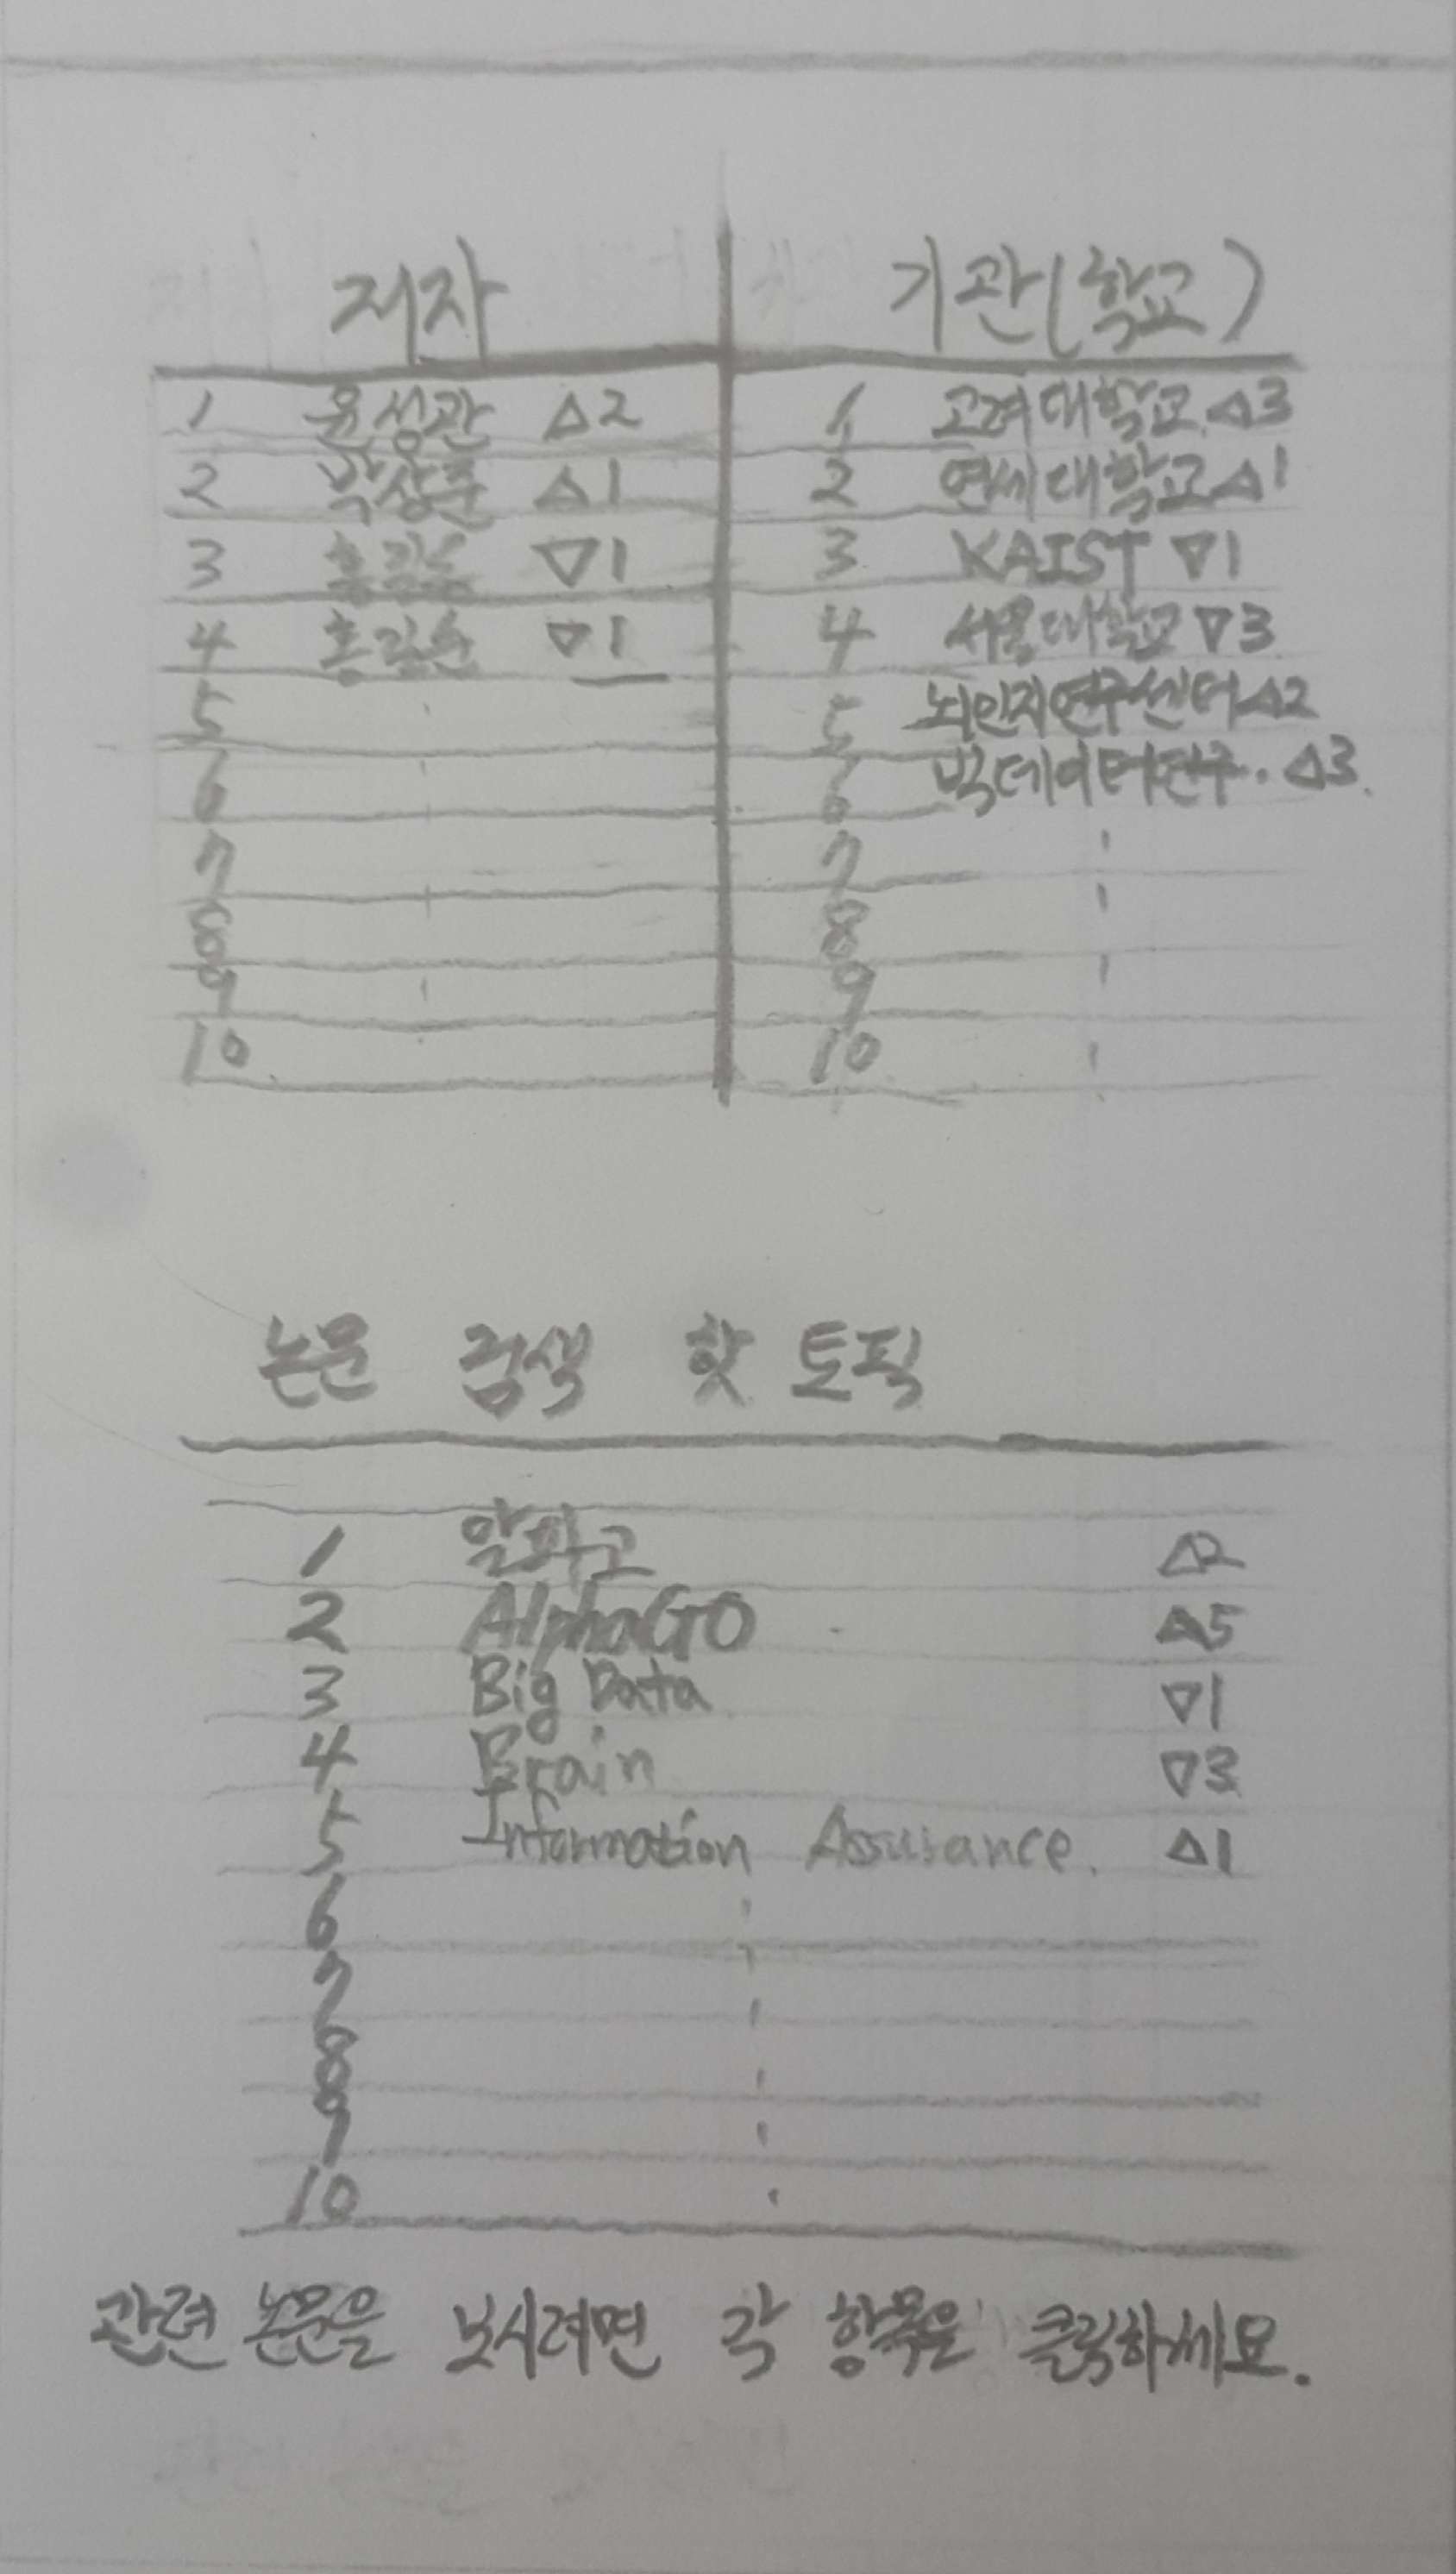 저자 기관(학교)
1 윤성관 △2 1 고려대학교 △3
2 박상훈 △1 2 연세대학교 △1
3 홍길동 ▽1 3 KAIST ▽1
4 홍길순 ▽1 4 서울대학교 ▽3
5 5 뇌인지연구센터 △2
6 6 빅데이터연구. △3
7 7
8 8
9 9
10 10
논문 검색 핫 토픽
1 알파고 △2
2 AlphaGO △5
3 Big Data ▽1
4 Brain ▽3
5 Information Assurance. △1
6
7
8
9
10
관련 논문을 보시려면 각 항목을 클릭하세요.